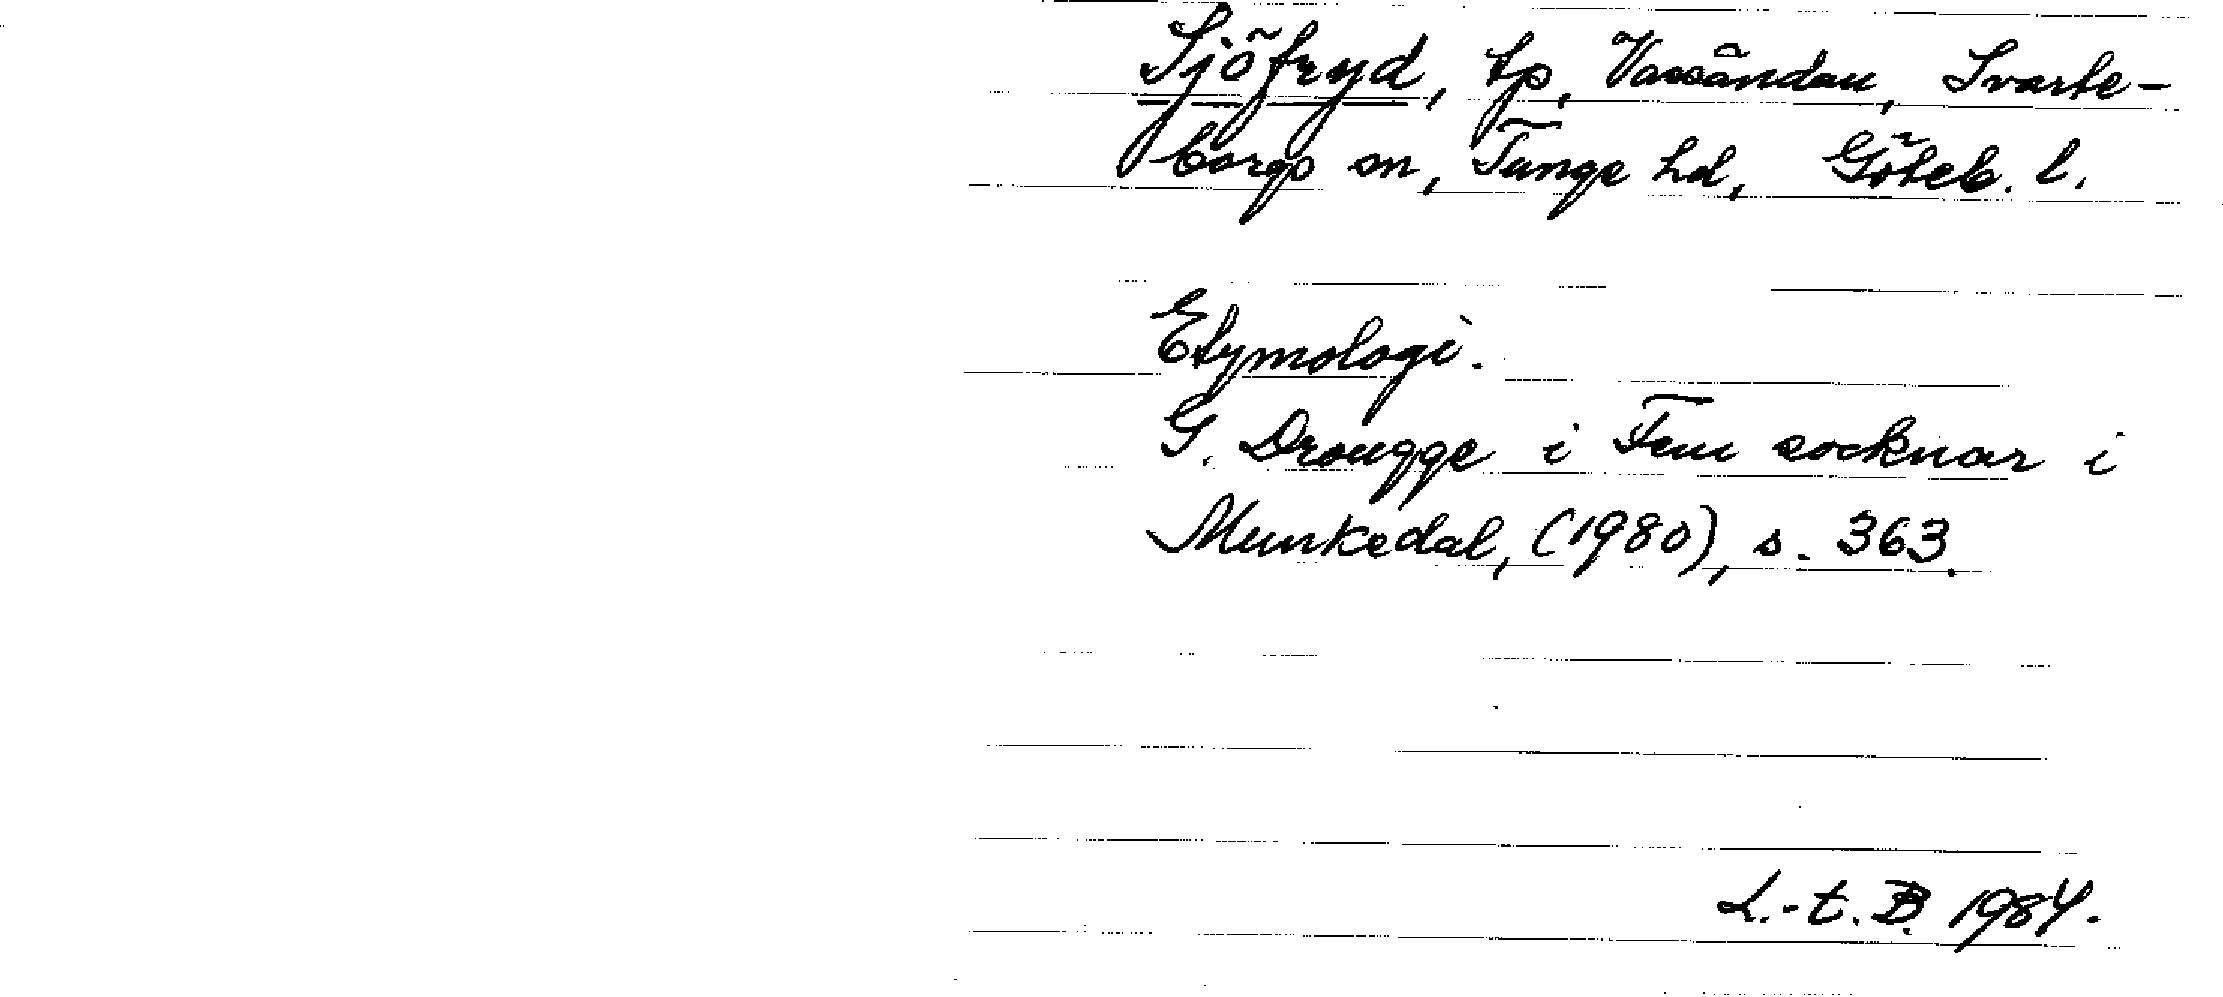 Sjöfryd, tp, Vassändan, Svarte-
borgs sn, Tunge hd, Göteb. l.
Etymologi.
G. Drougge i Fem socknar i
Munkedal, (1980), s. 363.
L.-E. B. 1984.